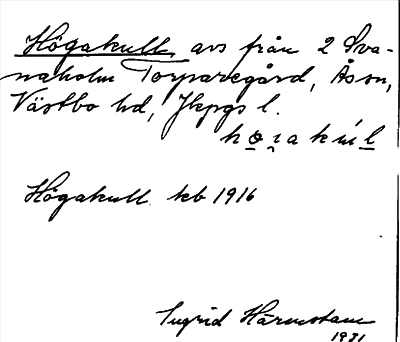 Högakull, avs från 2 Sva-
naholm Torparegård, Åsen,
Västbo hd, Jkpgs l.
högakul
Högakull kb 1916
Ingrid Härmstam
1931